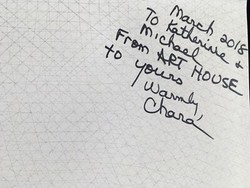 March, 2018
To Katherine &
Michael
From ART HOUSE
to yours
Warmly,
Chara